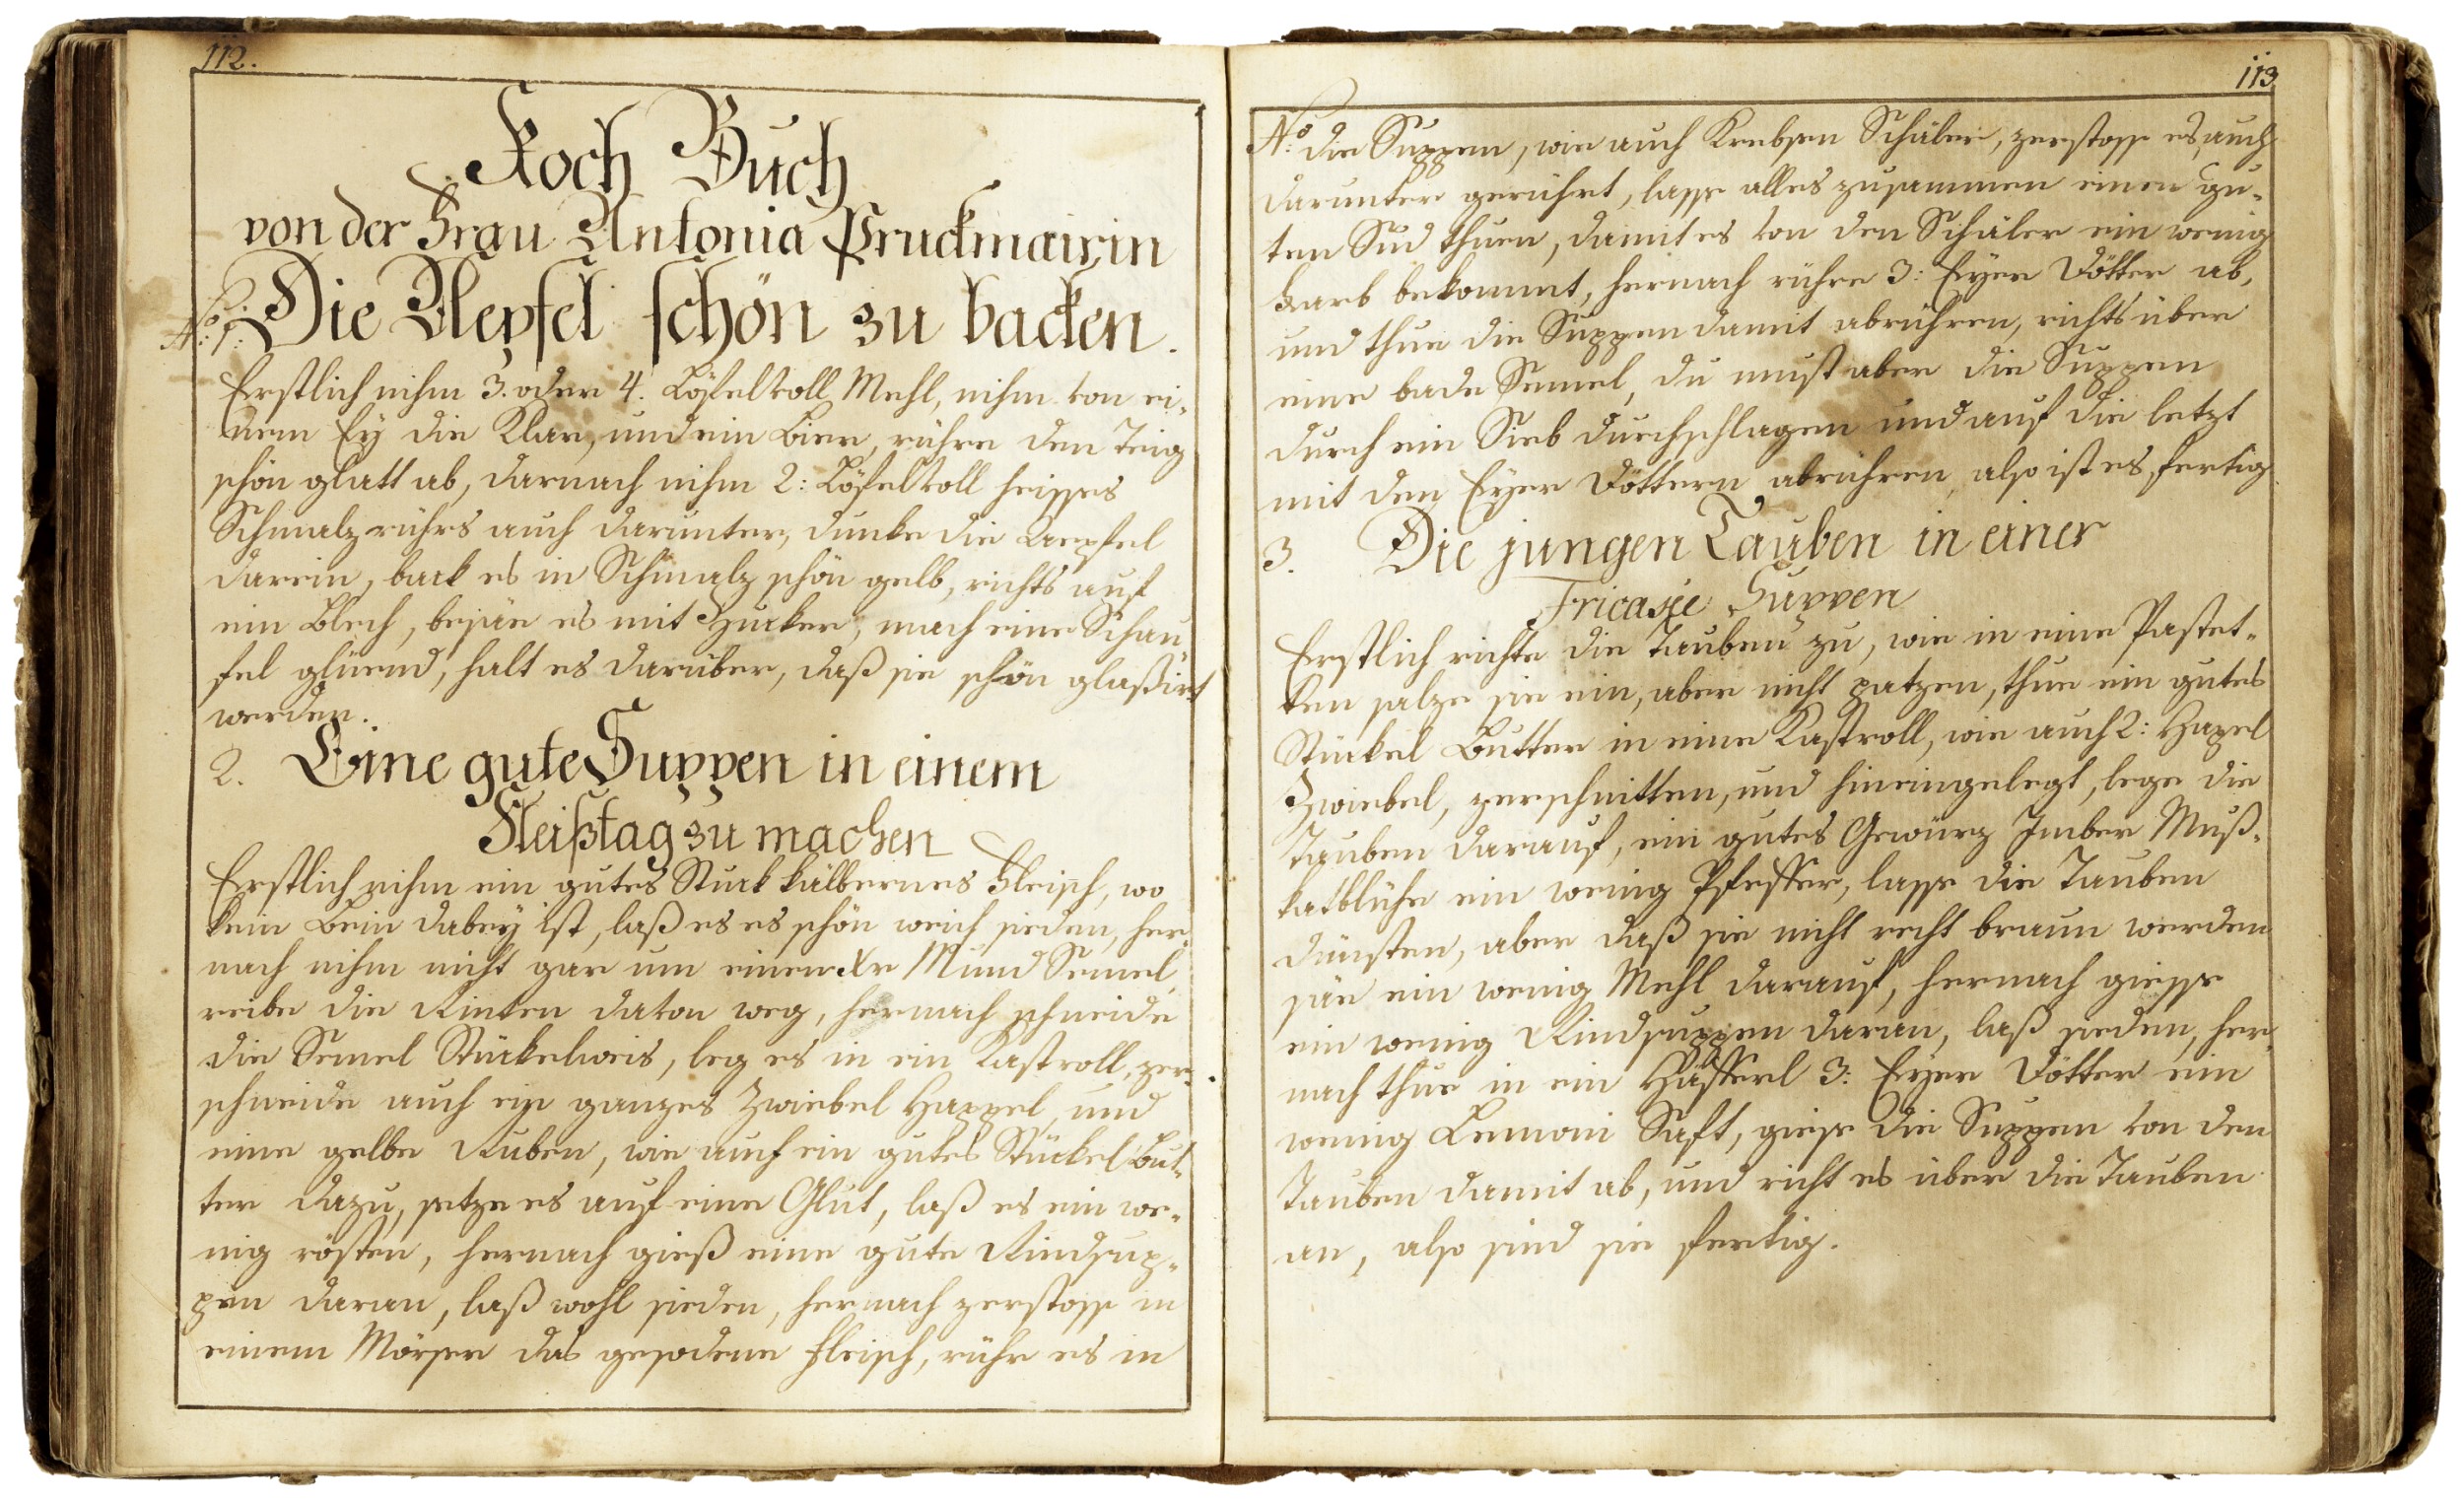 112.
Koch Buch
von der Frau Antonia Pruckmairin
No: 1: Die Aepfel schön zu backen.
Erstlich nihm 3. oder 4. Löfelvoll Mehl, nihm von ei-
nem Ey die Klar, und ein Bier, rühre den Teig
schön glatt ab, darnach nihm 2: Löfelvoll heisses
Schmalz rührs auch darunter, dunke die Aepfel
darein, back es in Schmalz schön gelb, richts auf
ein Blech, besäe es mit Zucker, mach eine Schau-
fel glüend, halt es darüber, daß sie schön glaßirt
werden.
2. Eine gute Suppen in einem
Fleißtag zu machen
Erstlich nihm ein gutes Stuck kälbernes Fleisch, wo
kein Bein dabey ist, laß es es schön weich sieden, her-
nach nihm nicht gar um einen Xr Mund Semel,
reibe die Rinten davon weg, hernach schneide
die Semel Stückelweis, leg es in ein Kastroll, zer-
schneide auch ein ganzes Zwiebel Happel, und
eine gelbe Ruben, wie auch ein gutes Stückel But-
ter dazu, setze es auf eine Glut, laß es ein we-
nig rösten, hernach gieß eine gute Rindsup-
pen daran, laß wohl sieden, hernach zerstosse in
einem Mörser das gesodene Fleisch, rühr es in
113.
No: die Suppen, wie auch Krebsen Schäler, zerstosse es, auch
darunter gerührt, lasse alles zusammen einen gu-
ten Sud thuen, damit es von den Schäler ein wenig
Farb bekommt, hernach rühre 3: Eyer Dötter ab,
und thue die Suppen damit abrühren, richts über
eine bade Semel, du must aber die Suppen
durch ein Sieb durchschlagen und auf die letzt
mit den Eyer Döttern abrühren, also ist es fertig.
3. Die jungen Tauben in einer
Fricasse Suppen
Erstlich richte die Tauben zu, wie in eine Pastet-
ten salze sie ein, aber nicht patzen, thue ein gutes
Stückel Butter in eine Kastroll, wie auch 2: Hapel
Zwiebel, zerschnitten, und hineingelegt, lege die
Tauben darauf, ein gutes Gewürz Imber Muß-
katblühe ein wenig Pfeffer, lasse die Tauben
dünsten, aber daß sie nicht recht braun werden
säe ein wenig Mehl darauf, hernach giesse
ein wenig Rindsuppen daran, laß sieden, her-
nach thue in ein Häfferl 3: Eyer Dötter ein
wenig Lemoni Saft, giese die Suppen von den
Tauben damit ab, und richt es über die Tauben
an, also sind sie fertig.